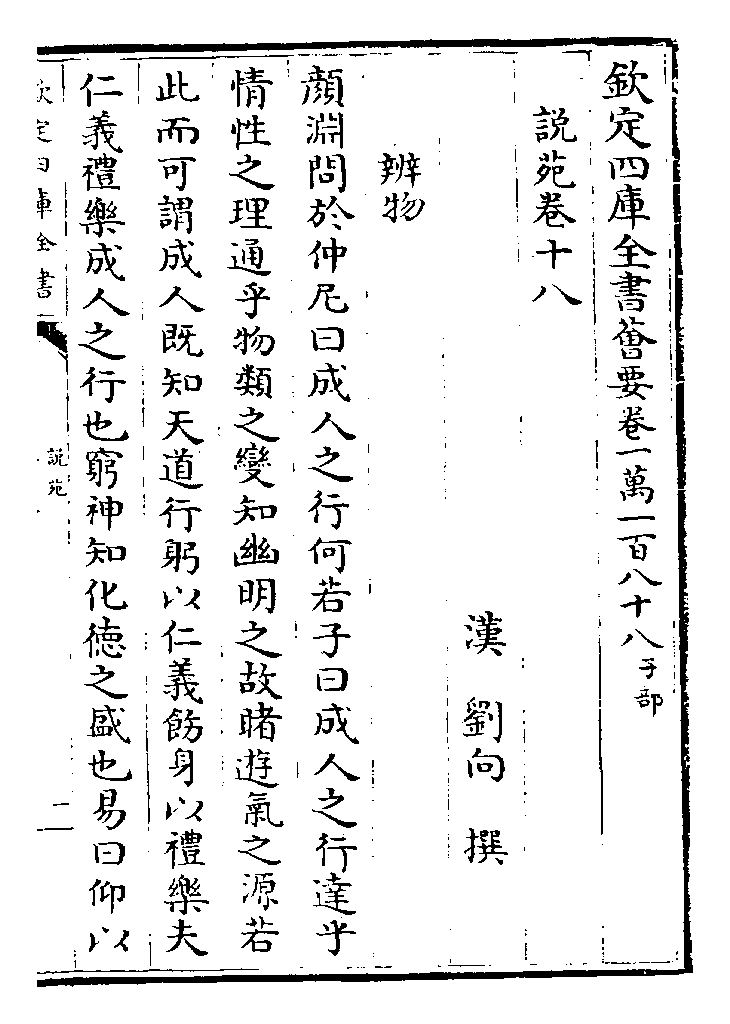 欽定四庫全書薈要卷一萬一百八十八子部
説苑卷十八
漢 劉向 撰
辨物
顔淵問於仲尼曰成人之行何若子曰成人之行達乎
情性之理通乎物類之變知幽明之故睹遊氣之源若
此而可謂成人既知天道行躬以仁義飭身以禮樂夫
仁義禮樂成人之行也窮神知化德之盛也易曰仰以
欽定四庫全書
説苑
一